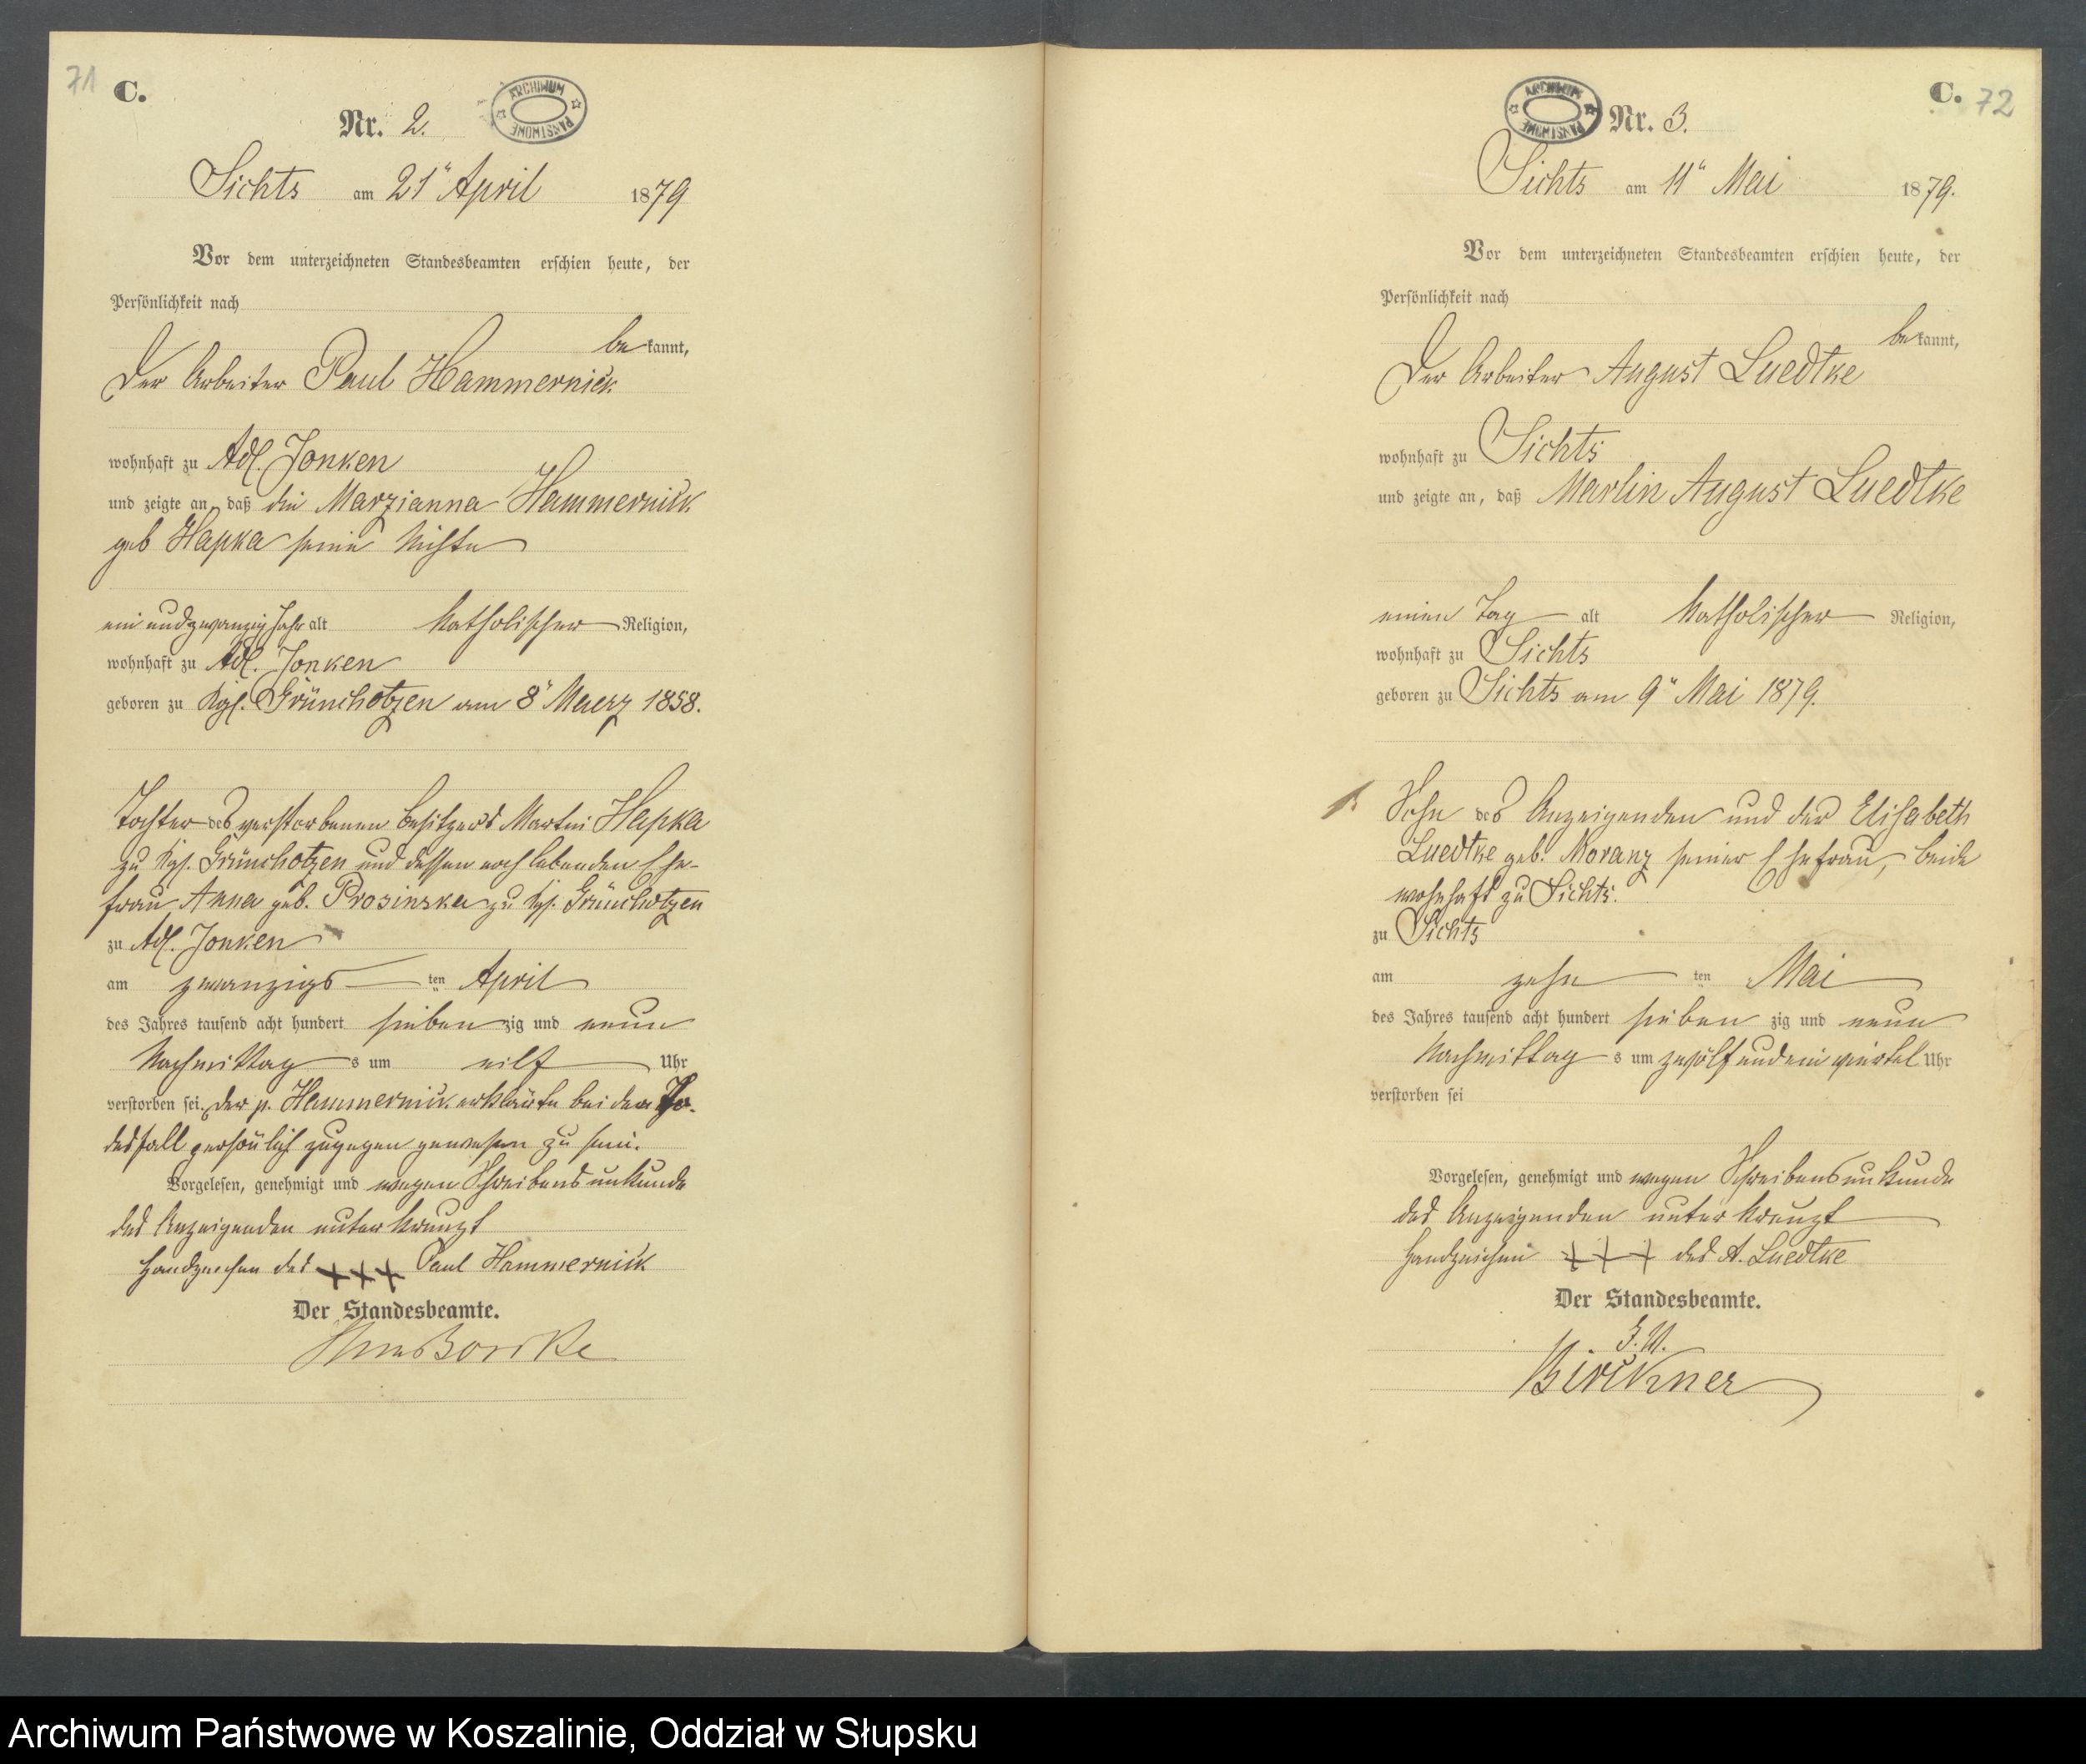 71
C.
ARCHIWUM PAŃSTWOWE
Nr. 2.
Sichts am 21" April 1879
Vor dem unterzeichneten Standesbeamten erschien heute, der
Persönlichkeit nach
bekannt,
Der Arbeiter Paul Hammernick
wohnhaft zu Adl. Jonken
und zeigte an, daß die Marzianna Hammernick
geb Hapka seine
ein und zwanzig Jahr alt Katholischer Religion,
wohnhaft zu Adl. Jonken
geboren zu Kgl. Grünchotzen am 8" Maerz 1858.
Tochter des verstorbenen Besitzers Martin Hapka
zu Kgl. Grünchotzen und dessen noch lebenden Ehe-
frau Anna geb. Prosinska zu Kgl. Grünchotzen
zu Adl. Jonken
am zwanzigs ten April
des Jahres tausend acht hundert sieben zig und neun
Nachmittag s um eilf Uhr
verstorben sei. Der p. Hammernick erklärte bei dem To-
desfall persönlich zugegen gewesen zu sein.
Vorgelesen, genehmigt und wegen Schreibensunkunde
des Anzeigenden unterkreuzt
Handzeichen des +++ Paul Hammernick
Der Standesbeamte.
C. 72
ARCHIWUM PAŃSTWOWE
Nr. 3.
Sichts am 11" Mai 1879.
Vor dem unterzeichneten Standesbeamten erschien heute, der
Persönlichkeit nach
bekannt,
Der Arbeiter August Luedtke
wohnhaft zu Sichts
und zeigte an, daß Martin August Luedtke
einen Tag alt Katholischer Religion,
wohnhaft zu Sichts
geboren zu Sichts am 9" Mai 1879.
Sohn des Anzeigenden und der Elisabeth
Luedtke geb. Moranz seiner Ehefrau, beide
wohnhaft zu Sichts.
zu Sichts
am zehn ten Mai
des Jahres tausend acht hundert sieben zig und neun
Nachmittag s um zwölf und ein viertel Uhr
verstorben sei
Vorgelesen, genehmigt und wegen Schreibensunkunde
des Anzeigenden unterkreuzt
Handzeichen +++ des A. Luedtke
Der Standesbeamte.
Birckner
Archiwum Państwowe w Koszalinie, Oddział w Słupsku